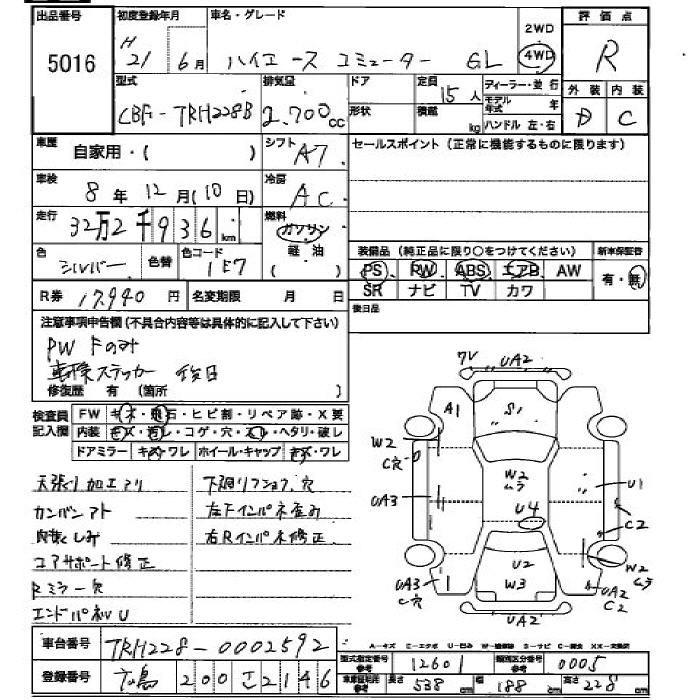 出品番号 初度登録年月 車名・グレード 2WD 評価点
5016 H 21 6月 ハイエース コミューター GL 4WD R
型式 排気量 ドア 定員 15人 ディーラー・並行 外装 内装
CBF-TRH228B 2.700cc 形状 積載 kg モデル年式 年 ハンドル 左・右 D C
車歴 自家用・( ) シフト A7 セールスポイント (正常に機能するものに限ります)
車検 8年 12月(10日) 冷房 AC
走行 32万2千936km 燃料 ガソリン 軽油
色 シルバー 色替 色コード 1E7
装備品 (純正品に限り○をつけてください) 新車保証書
PS PW ABS エアB AW 有・無
SR ナビ TV カワ
R券 17,940円 名変期限 月 日 後日品
注意事項申告欄(不具合内容等は具体的に記入して下さい)
PW Fのみ
車検ステッカー 後日
修復歴 有 (箇所 )
検査員記入欄 FW キズ・飛石・ヒビ割・リペア跡・X要
内装 キズ・汚レ・コゲ・穴・スレ・ヘタリ・破レ
ドアミラー キズ・ワレ ホイール・キャップ キズ・ワレ
天張り加工アリ 下廻リフショク穴
カンバンアト 左Fインパネ歪み
コアサポート修正 右Rインパネ修正
Rミラー欠
エンドパネルU
7V UA2
A1 S1
W2 C穴
W2 ムラ
UA3 U1
U4 C2
UA3 C穴 U2 W2 ムラ
W3 UA2 C2
UA2
車台番号 TRH228-0002592
A-キズ E-エクボ U-凹み W-補修跡 S-サビ C-腐食 XX-交換済
登録番号 広島 200 さ 2146
型式指定番号 参考 12601 類別区分番号 参考 0005
車庫証明用 参考 長さ 538cm 幅 188cm 高さ 228cm